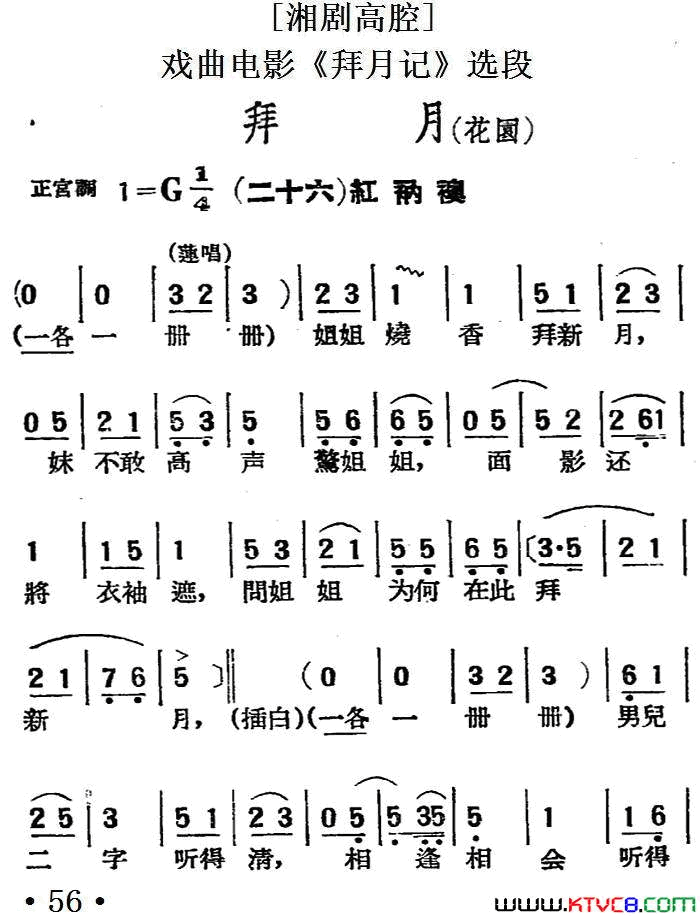 [湘剧高腔]
戏曲电影《拜月记》选段
拜 月(花園)
正宫調 1=G 1/4 (二十六)紅衲襖
(蓮唱)
(0 | 0 | 3 2 | 3 ) | 2 3 | 1 | 1 | 5 1 | 2 3 |
(一各 一 冊 冊) 姐姐 燒 香 拜新 月,
0 5 | 2 1 | 5 3 | 5 | 5 6 | 6 5 | 0 5 | 5 2 | 2 61 |
妹 不敢 高 声 驚姐 姐, 面 影 还
1 | 1 5 | 1 | 5 3 | 2 1 | 5 5 | 6 5 | 〔3·5 | 2 1 |
將 衣袖 遮, 問姐 姐 为何 在此 拜
2 1 | 7 6 | 5 〕‖ ( 0 | 0 | 3 2 | 3 ) | 6 1 |
新 月, (插白)(一各 一 冊 冊) 男兒
2 5 | 3 | 5 1 | 2 3 | 0 5 | 5 35 | 5 | 1 | 1 6 |
二 字 听得 清, 相 逢 相 会 听得
· 56 ·
www.KTVC8.com